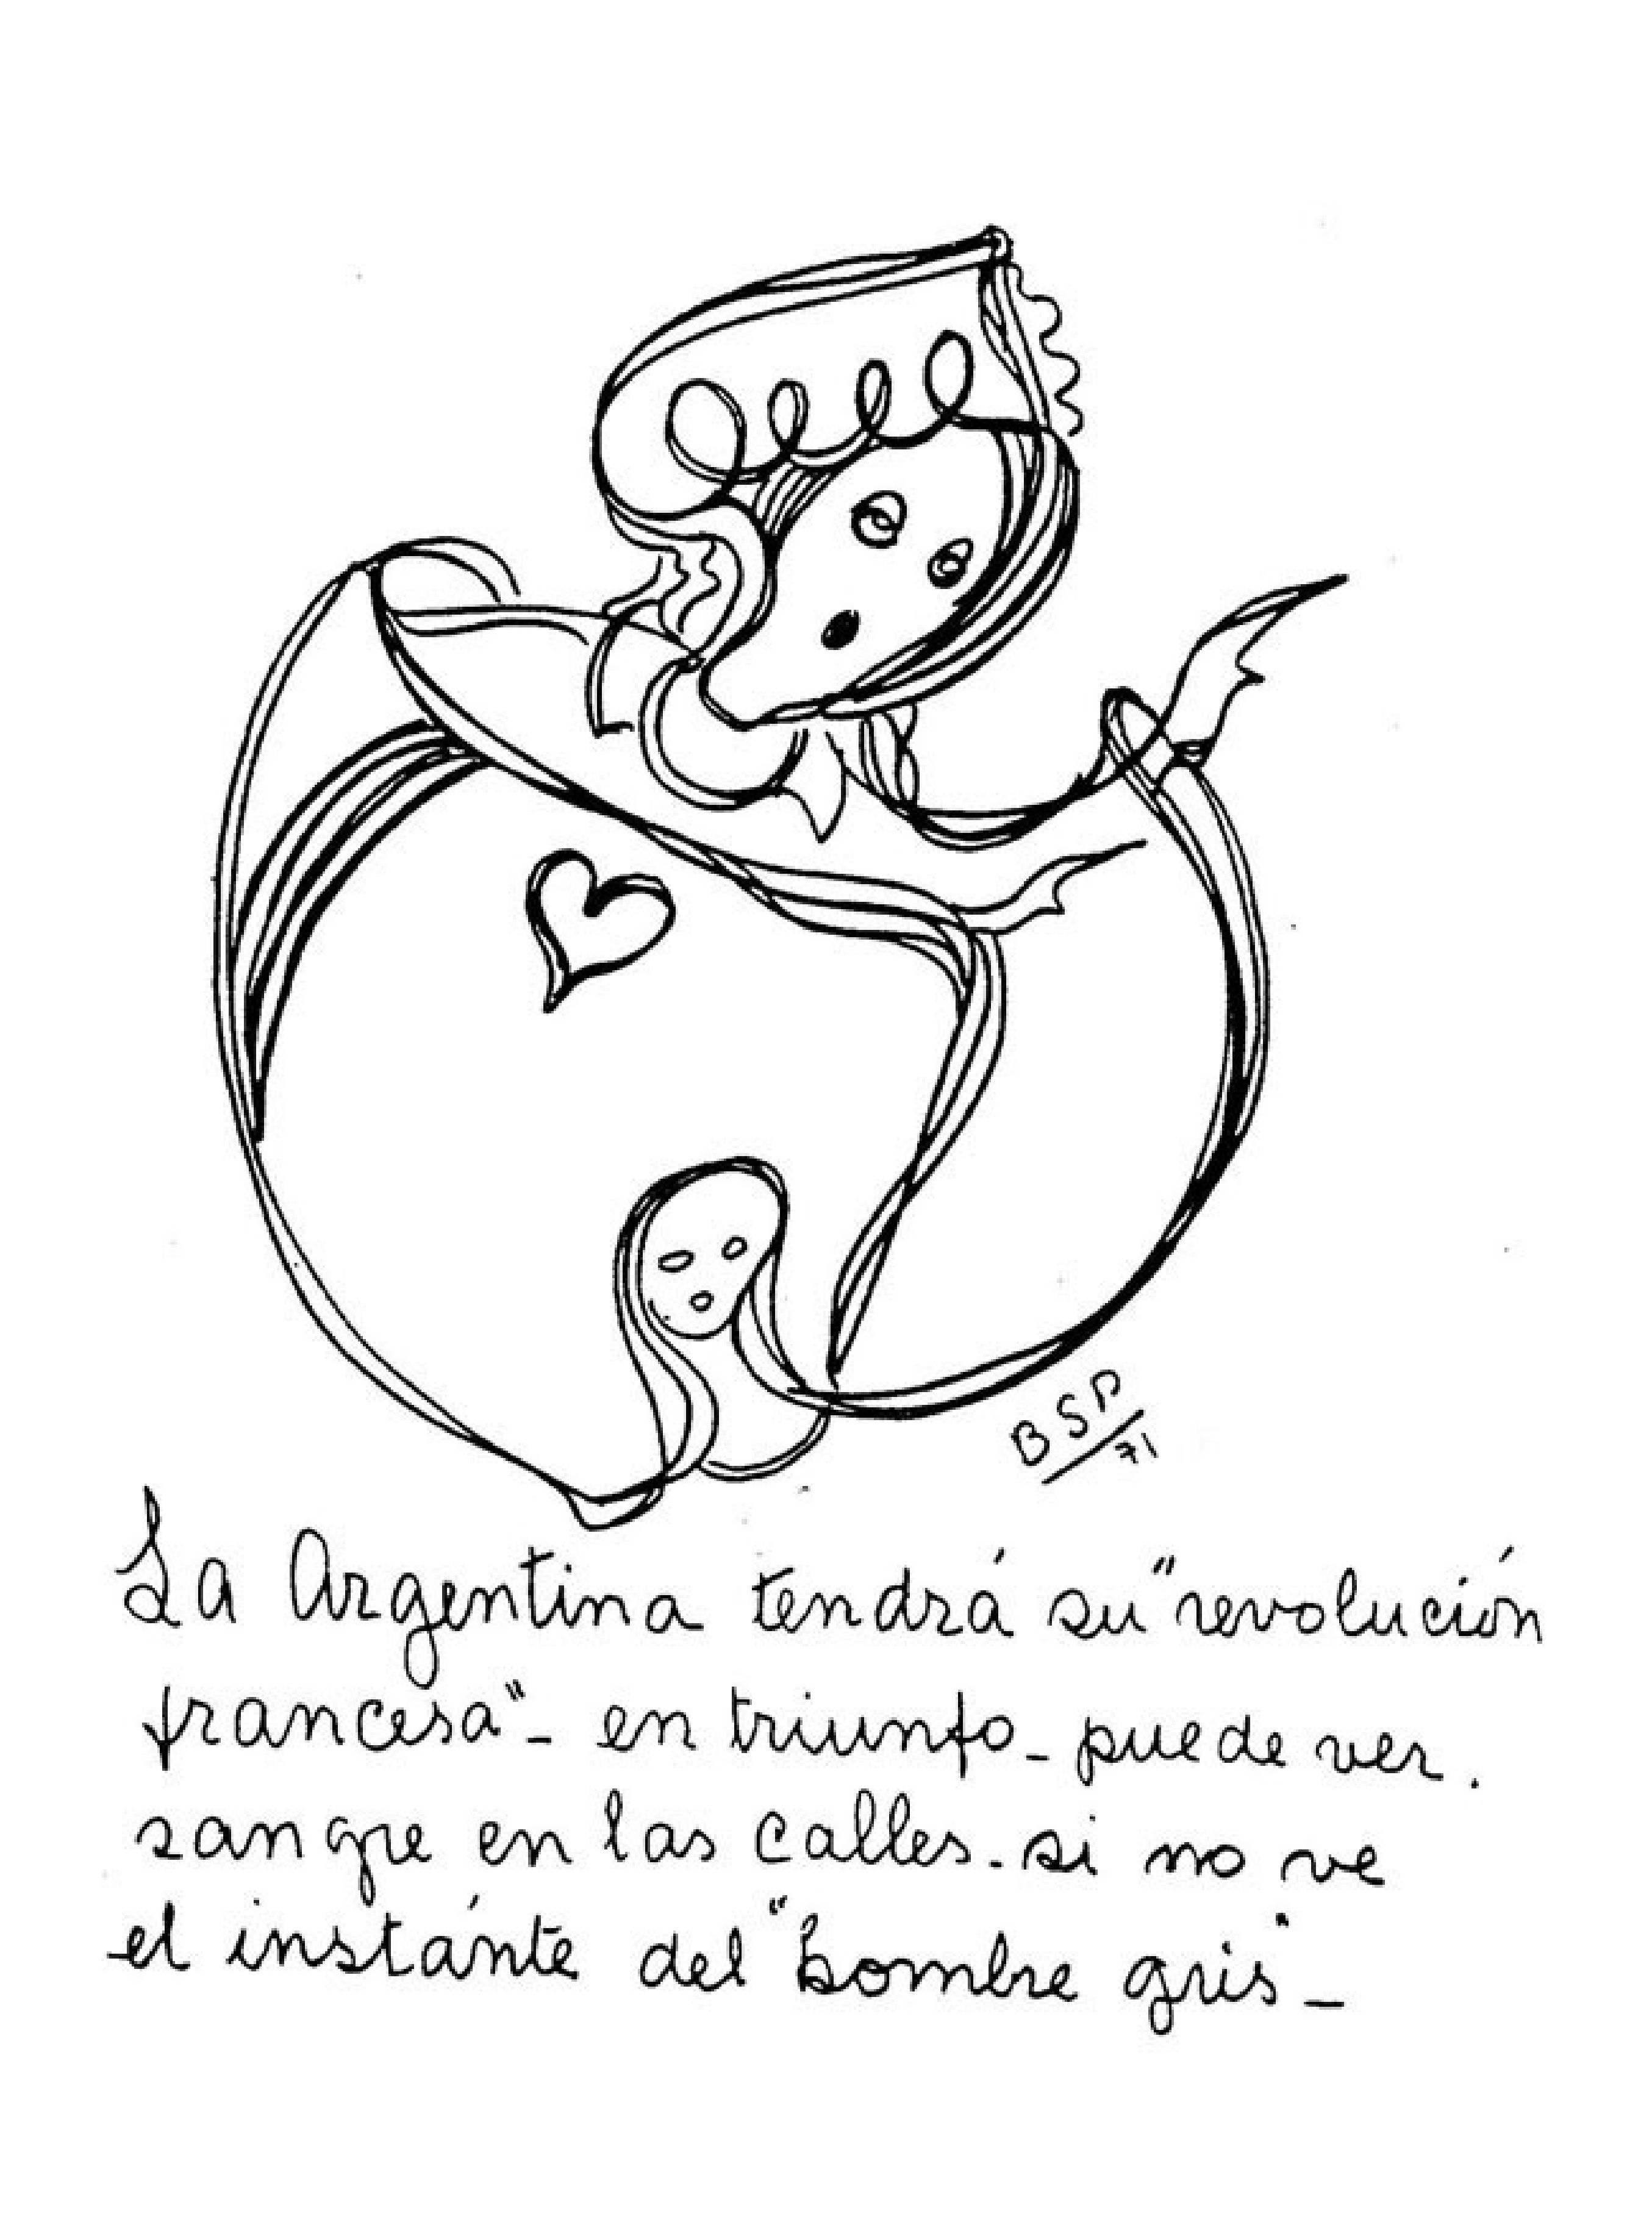 BSP
71
La Argentina tendrá su "revolución
francesa"- en triunfo - puede ver.
sangre en las calles. si no ve
el instánte del "hombre gris" -